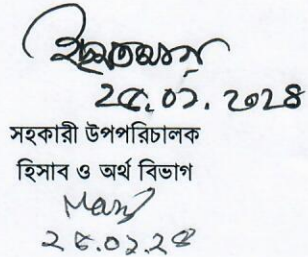 ২৫.০২.২০২৪
সহকারী উপপরিচালক
হিসাব ও অর্থ বিভাগ
২৫.০২.২৪